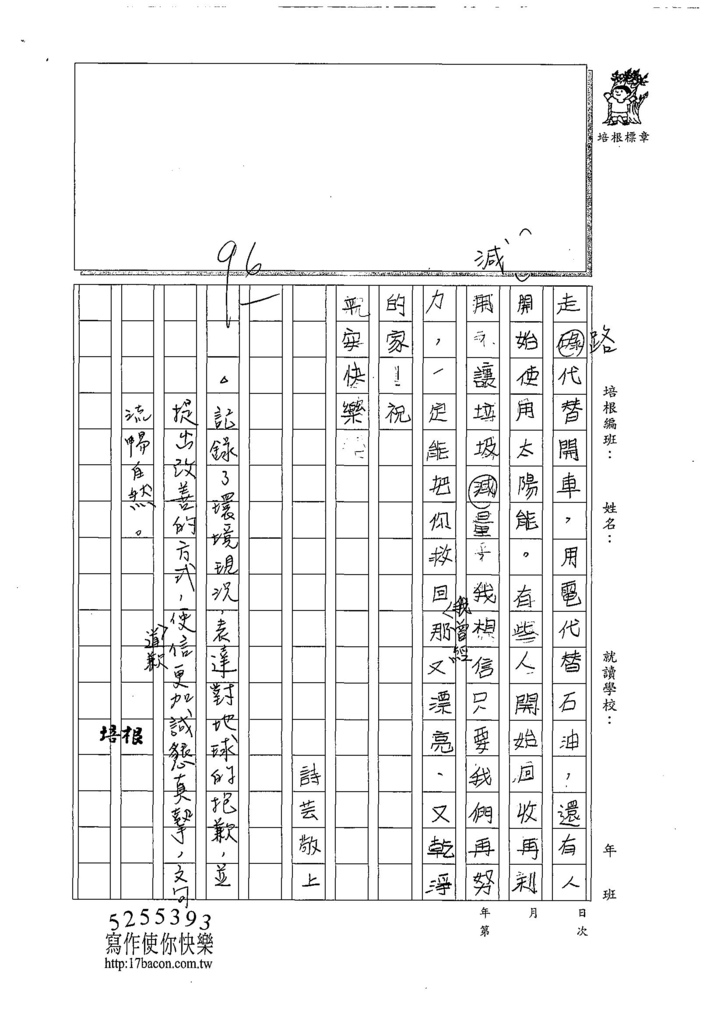 培根標章
培根編班：
姓名：
就讀學校：
年 班
年 月 日
第 次
減
96
走碌代替開車，用電代替石油，還有人
路
開始使用太陽能。有些人開始回收再利
用，讓垃圾減量，我相信只要我們再努
力，一定能把你救回那又漂亮、又乾淨
我曾經
的家！祝
平安快樂
詩芸敬上
記錄了環境現況，表達對地球的抱歉，並
提出改善的方式，使信更加誠懇真摯，文句
道歉
流暢自然。
培根
5255393
寫作使你快樂
http:17bacon.com.tw